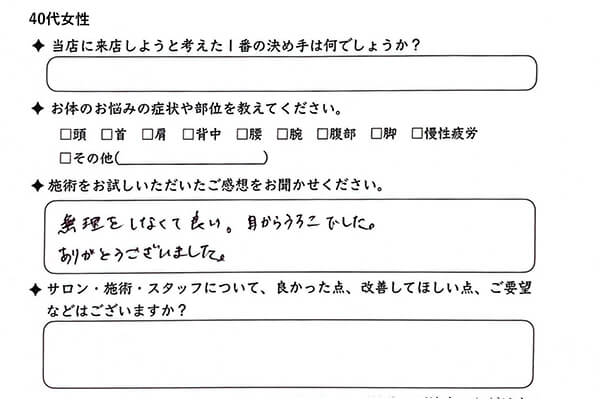 40代女性
✦ 当店に来店しようと考えた1番の決め手は何でしょうか？
✦ お体のお悩みの症状や部位を教えてください。
□頭 □首 □肩 □背中 □腰 □腕 □腹部 □脚 □慢性疲労
□その他( )
✦ 施術をお試しいただいたご感想をお聞かせください。
無理をしなくて良い。目からうろこでした。
ありがとうございました。
✦ サロン・施術・スタッフについて、良かった点、改善してほしい点、ご要望
などはございますか？